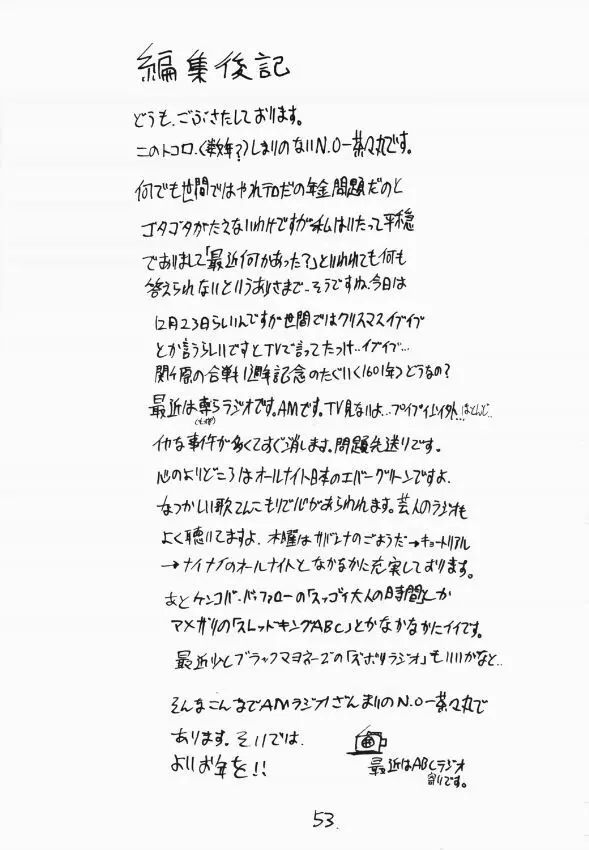 編集後記
どうも、ごぶさたしております。
このトコロ、(数年?)しまりのないN.O-茶々丸です。
何でも世間ではやれテロだの年金問題だのと
ゴタゴタがたえないわけですが私はいたって平穏
でありまして「最近何かあった?」といわれても何も
答えられないというありさまで‥そうですね、今日は
12月23日らしいんですが世間ではクリスマスイブイブ
とか言うらしいですとTVで言ってたっけ‥イブイブ…
関ヶ原の合戦1周年記念のたぐい(1601年)どうなの?
最近は専らラジオです。AMです。TV見ないよ…
イヤな事件が多くてすぐ消します。問題先送りです。
心のよりどころはオールナイト日本のエバーグリーンですよ、
なつかしい歌てんこもりで心があらわれます。芸人のラジオも
よく聴いてますよ、木曜はサバンナのごようだ→キョートリアル
→ナイナイのオールナイトとなかなかに充実しております。
あとケンコバ・バッファローの「スッゴイ大人の時間」とか
アメザリの「スレッドキングABC」とかなかなかにイイです。
最近少しブラックマヨネーズの「ズボリラジオ」もいいかなと‥
そんなこんなでAMラジオざんまいのN.O-茶々丸で
あります。それでは、
よいお年を!!
最近はABCラジオ
寄りです。
53.